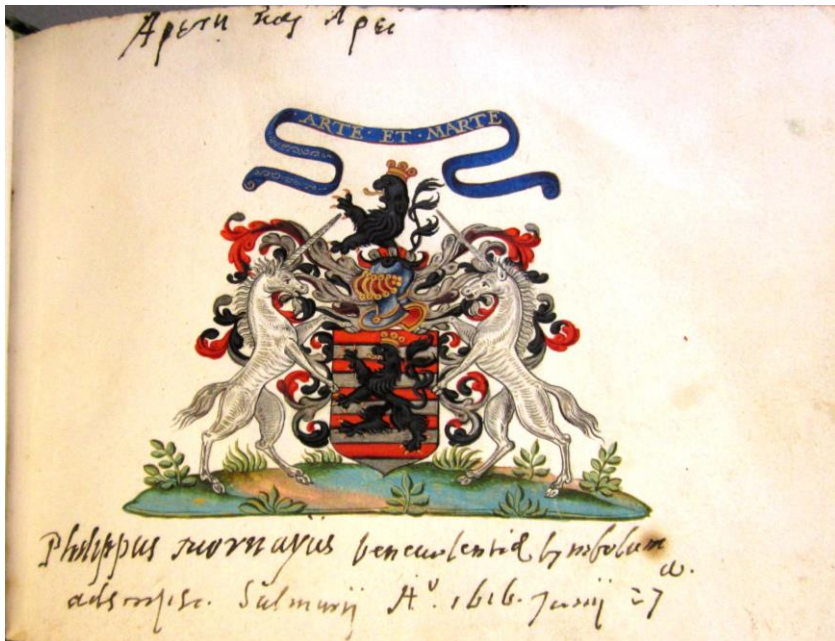 Αρετη και Αρει
ARTE · ET · MARTE
Philippus mornayus benevolentiæ symbolum
adscripsi. Salmurij Aº. 1616. Junij 27